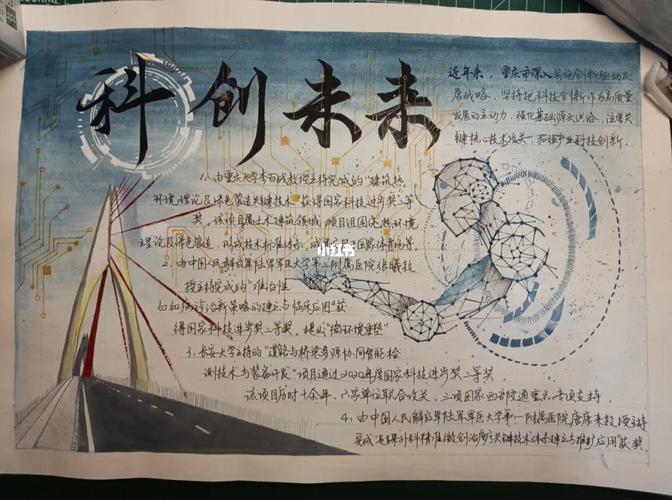 科创未来
近年来，重庆市深入实施创新驱动发
展战略，坚持把科技创新作为高质量
发展的主动力，强化基础源头供给，注重关
键核心技术攻关，加强产业科技创新。
1、由重庆大学李百战教授主持完成的"建筑热
环境理论及绿色营造关键技术"获得国家科技进步二等
奖，该项目属土木建筑领域，项目组围绕热环境
理论及绿色营造，形成技术标准体系，成果应用国家体育场等
2、由中国人民解放军陆军军医大学第二附属医院张曦教
授主持完成的"难治性
白血病诊治新策略的建立与临床应用"获
得国家科技进步奖二等奖，提出"微环境重塑"
小红书
3、长安大学主持的"道路与桥梁多源协同智能检
测技术与装备开发"项目通过2020年度国家科技进步奖二等奖
该项目历时十余年，六家单位联合攻关，三项国家西部交通重点专项支持
4、由中国人民解放军陆军军医大学第一附属医院唐康来教授主持
完成"足踝外科精准微创治疗关键技术体系建立与推广应用"获奖